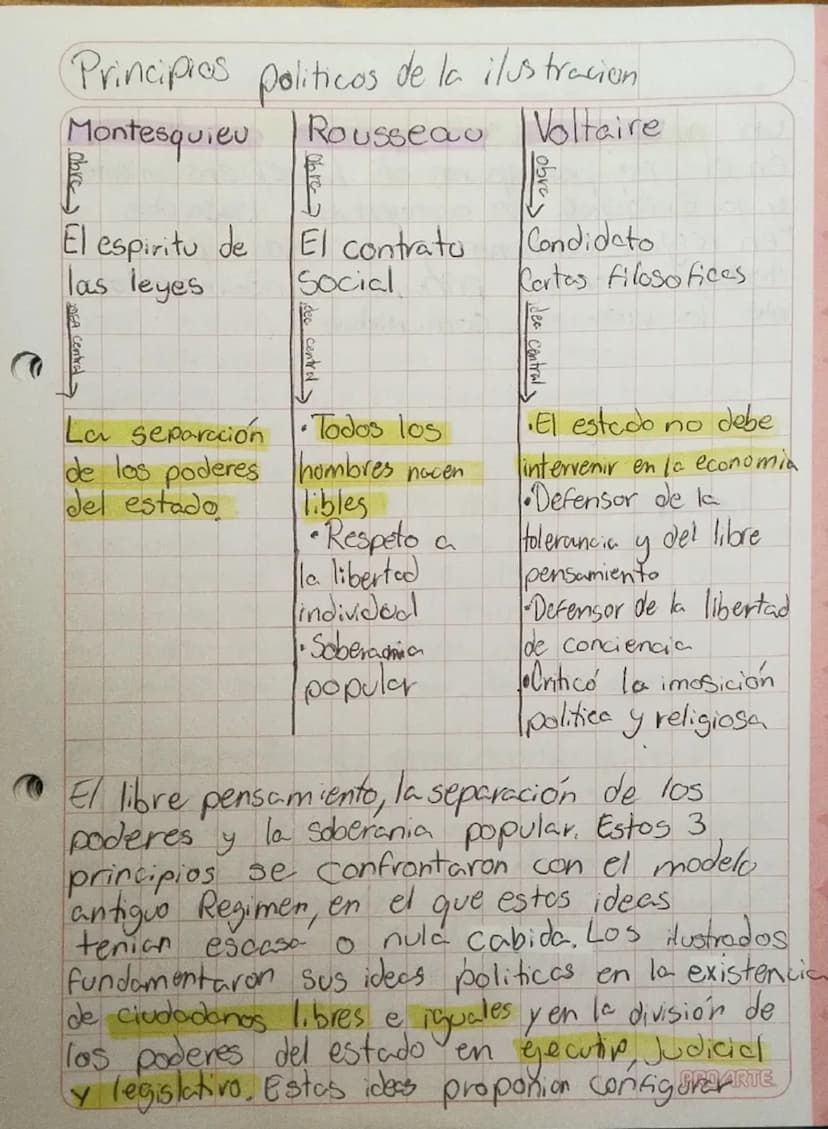 Principios politicos de la ilustracion
Montesquieu
obra
El espiritu de
las leyes
idea central
La separación
de los poderes
del estado.
Rousseau
obra
El contrato
Social
idea central
• Todos los
hombres nacen
libles
• Respeto a
la libertad
individual
• Soberania
popular
Voltaire
obra
Candidato
Cartas filosoficas
idea central
• El estado no debe
intervenir en la economia
• Defensor de la
tolerancia y del libre
pensamiento
• Defensor de la libertad
de conciencia
• Criticó la imosición
politica y religiosa
El libre pensamiento, la separación de los
poderes y la soberania popular. Estos 3
principios se confrontaron con el modelo
antiguo Regimen, en el que estas ideas
tenian escasa o nula cabida. Los ilustrados
fundamentaron sus ideas politicas en la existencia
de ciudadanos libres e iguales y en la división de
los poderes del estado en ejecutivo, Judicial
y legislativo. Estas ideas proponian configurar
PROARTE